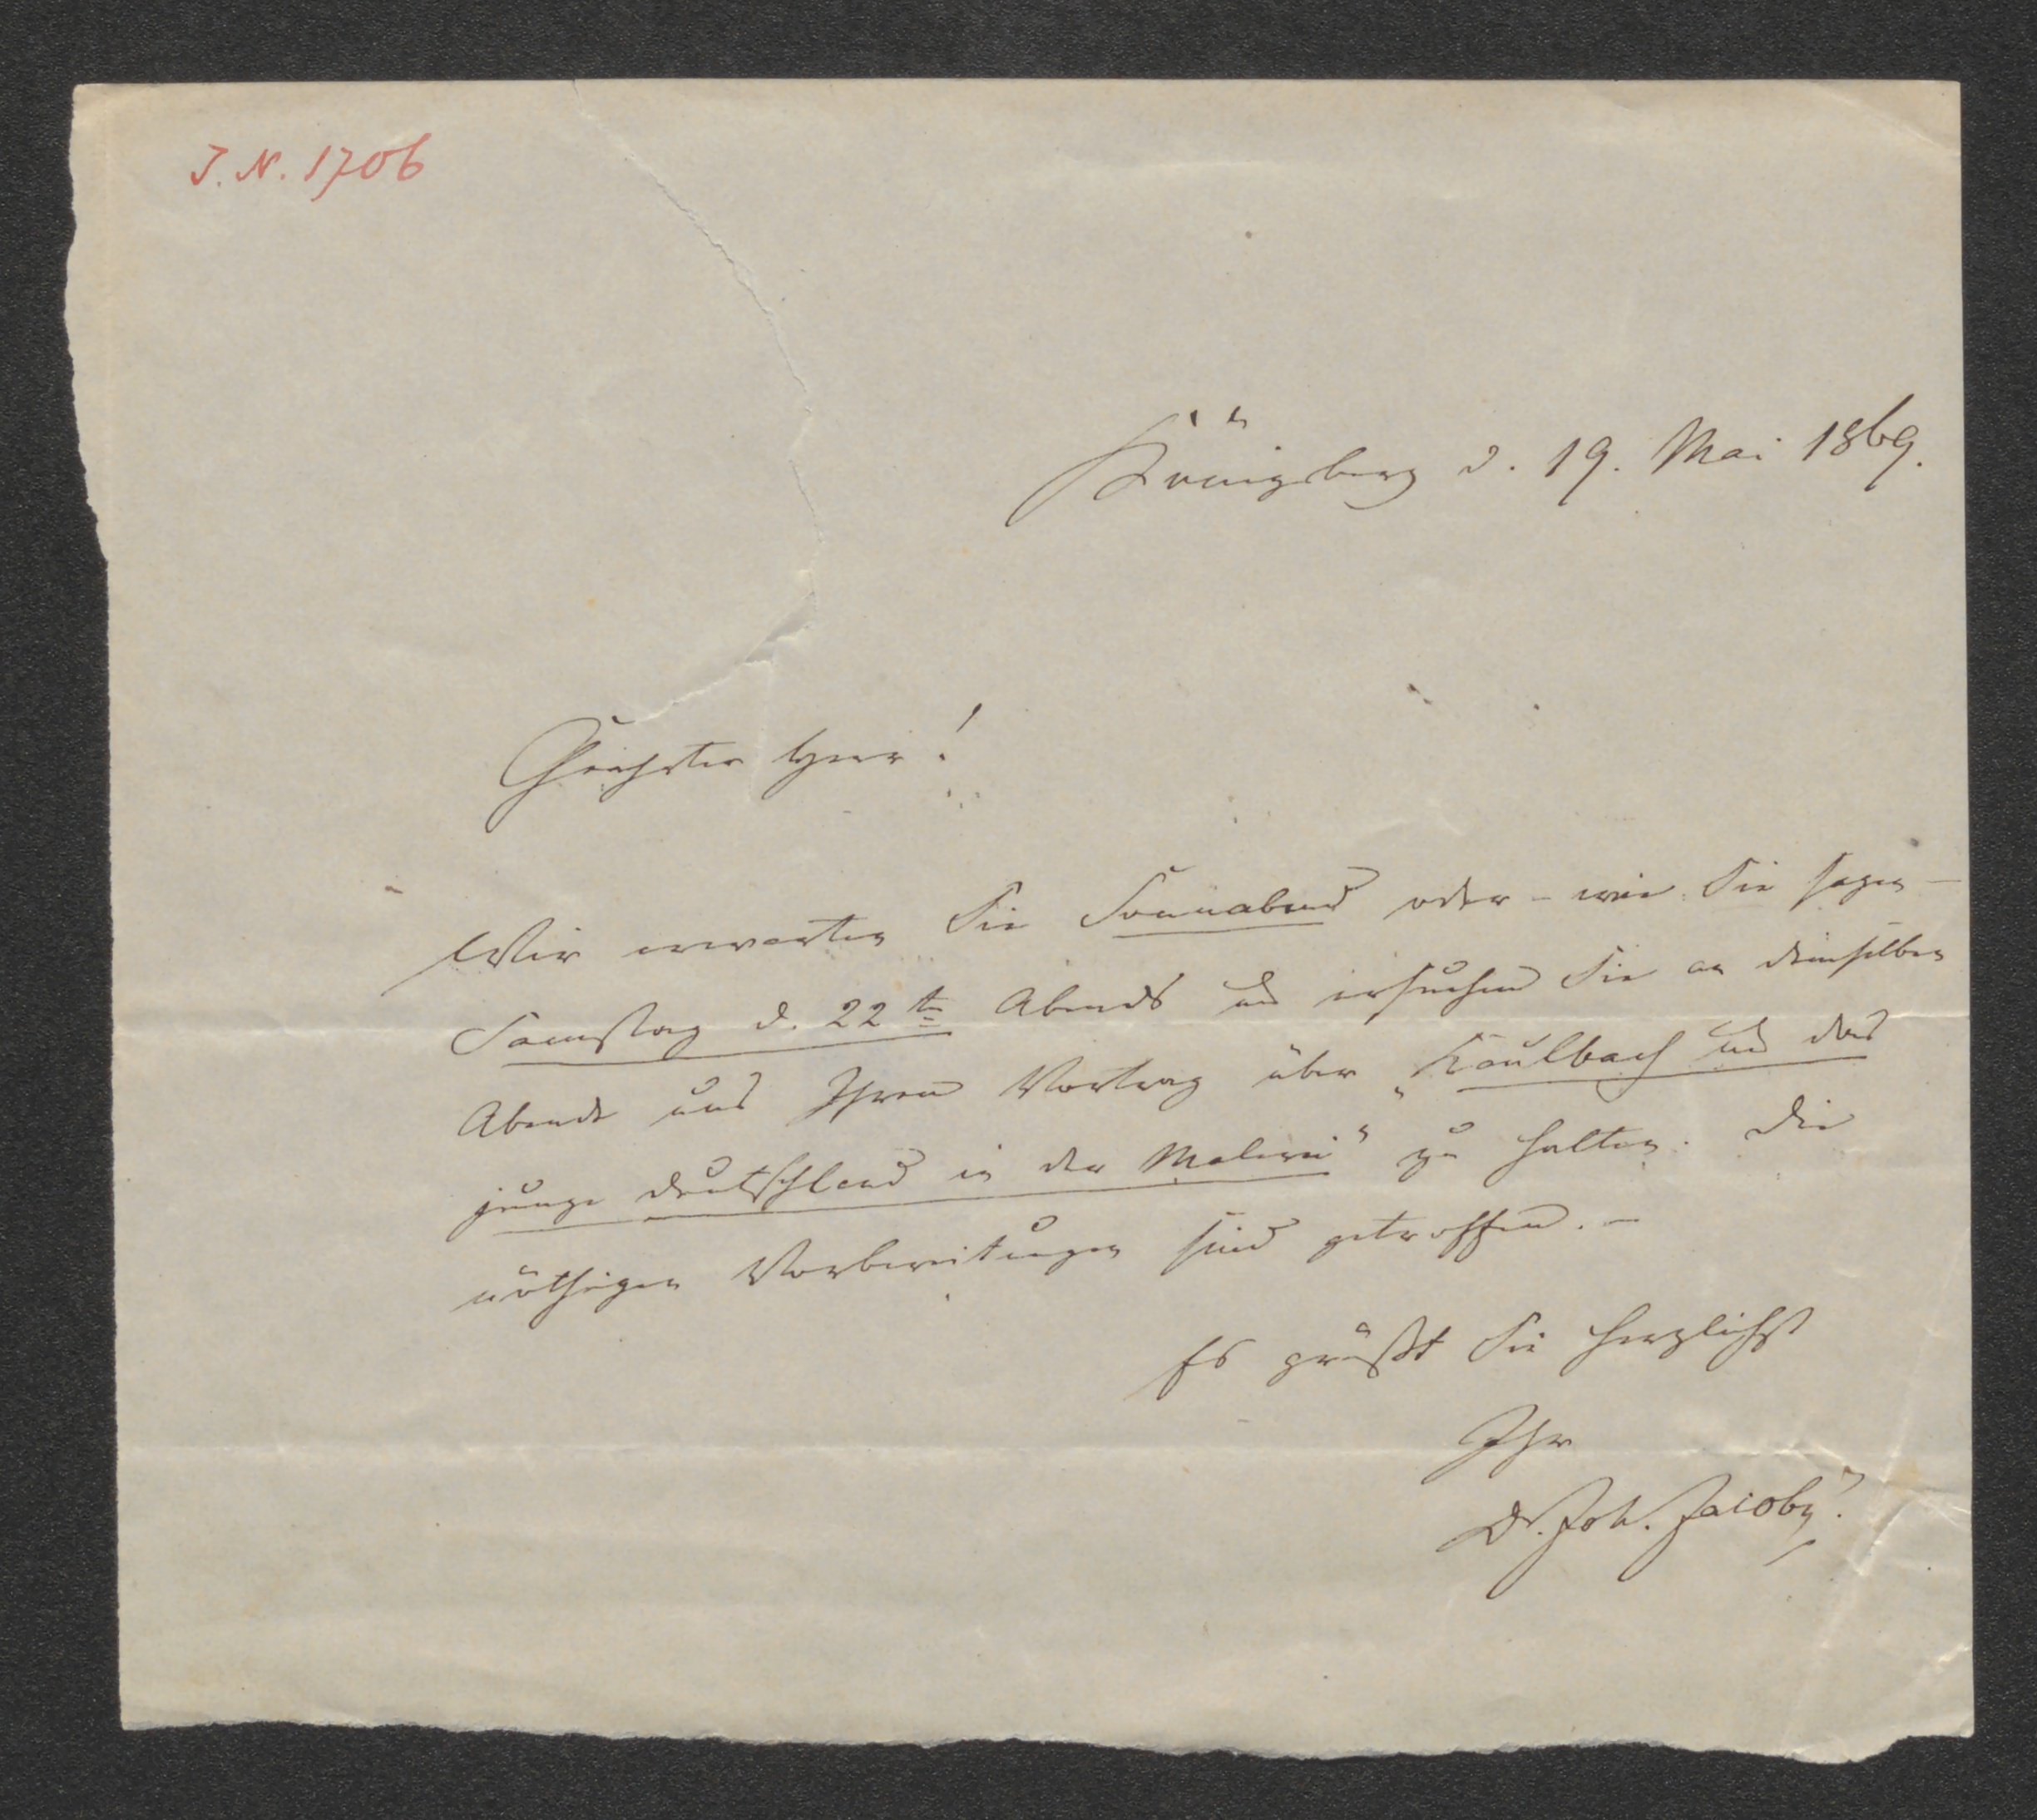 J. N. 1706
Königsberg d. 19. Mai 1869.
Geehrter Herr!
Wir erwarten Sie Sonnabend oder – wie Sie sagen –
Samstag d. 22ten Abends und ersuchen Sie an demselben
Abende uns Ihren Vortrag über „Kaulbach und das
junge Deutschland in der Malerei“ zu halten. Die
nöthigen Vorbereitungen sind getroffen. –
Es grüßt Sie herzlichst
Ihr
Dr. Joh. Jacoby.